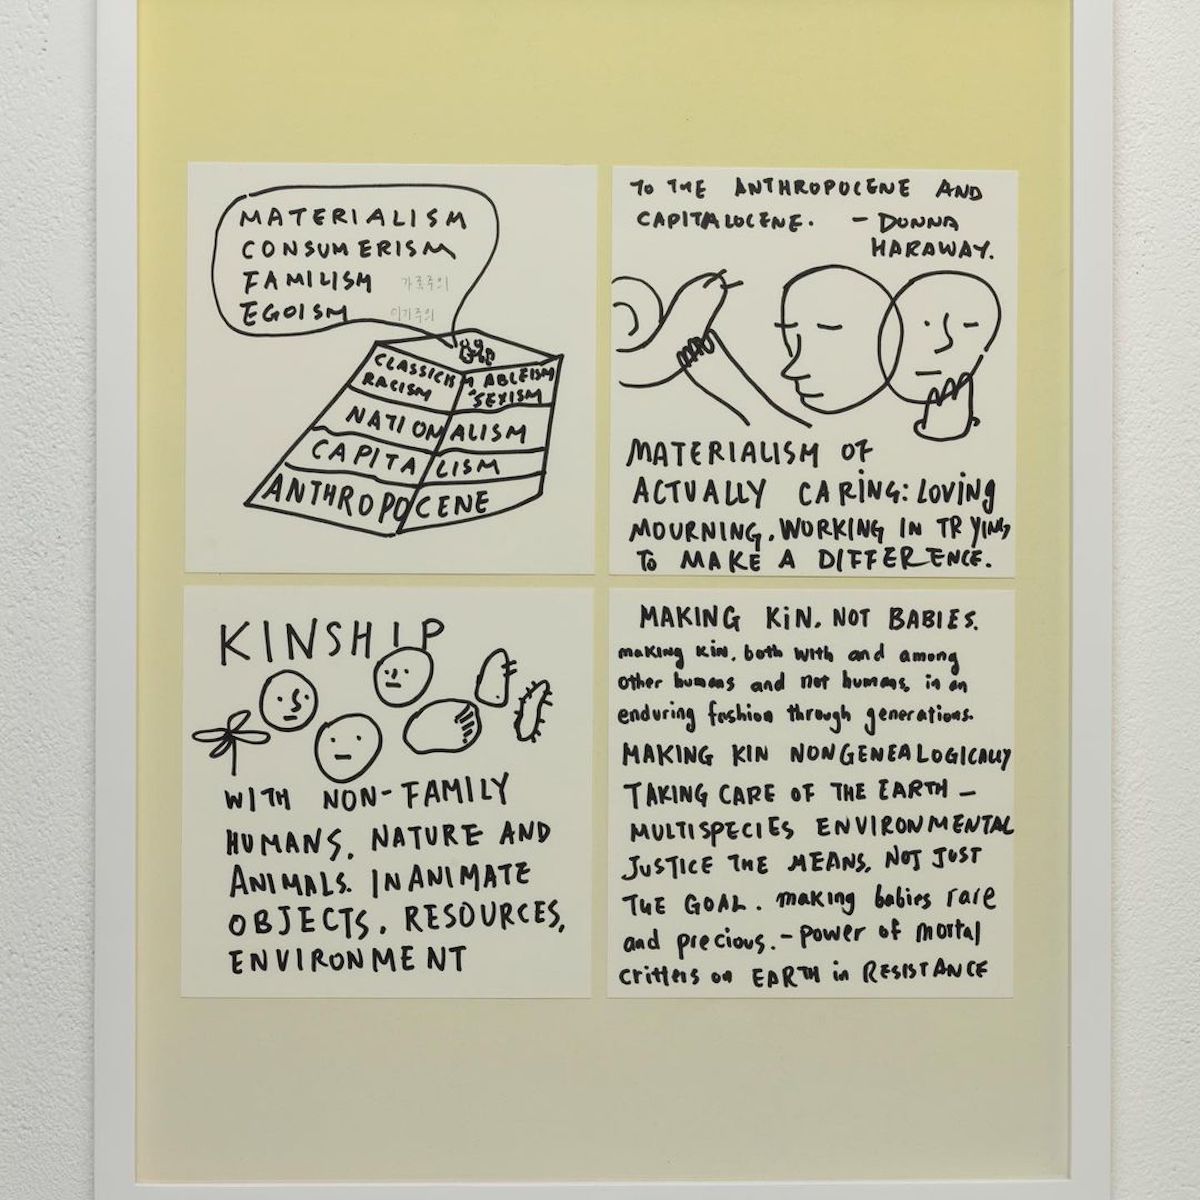 MATERIALISM
CONSUMERISM
FAMILISM 가족주의
EGOISM 이기주의
CLASSICISM ABLEISM
RACISM SEXISM
NATIONALISM
CAPITALISM
ANTHROPOCENE
TO THE ANTHROPOCENE AND
CAPITALOCENE. - DONNA
HARAWAY.
MATERIALISM OF
ACTUALLY CARING: LOVING
MOURNING. WORKING IN TRYING
TO MAKE A DIFFERENCE.
KINSHIP
WITH NON-FAMILY
HUMANS, NATURE AND
ANIMALS. INANIMATE
OBJECTS, RESOURCES,
ENVIRONMENT
MAKING KIN, NOT BABIES.
making kin, both with and among
other humans and not humans, in an
enduring fashion through generations.
MAKING KIN NONGENEALOGICALLY
TAKING CARE OF THE EARTH —
MULTISPECIES ENVIRONMENTAL
JUSTICE THE MEANS, NOT JUST
THE GOAL. making babies rare
and precious. - power of mortal
critters on EARTH in RESISTANCE